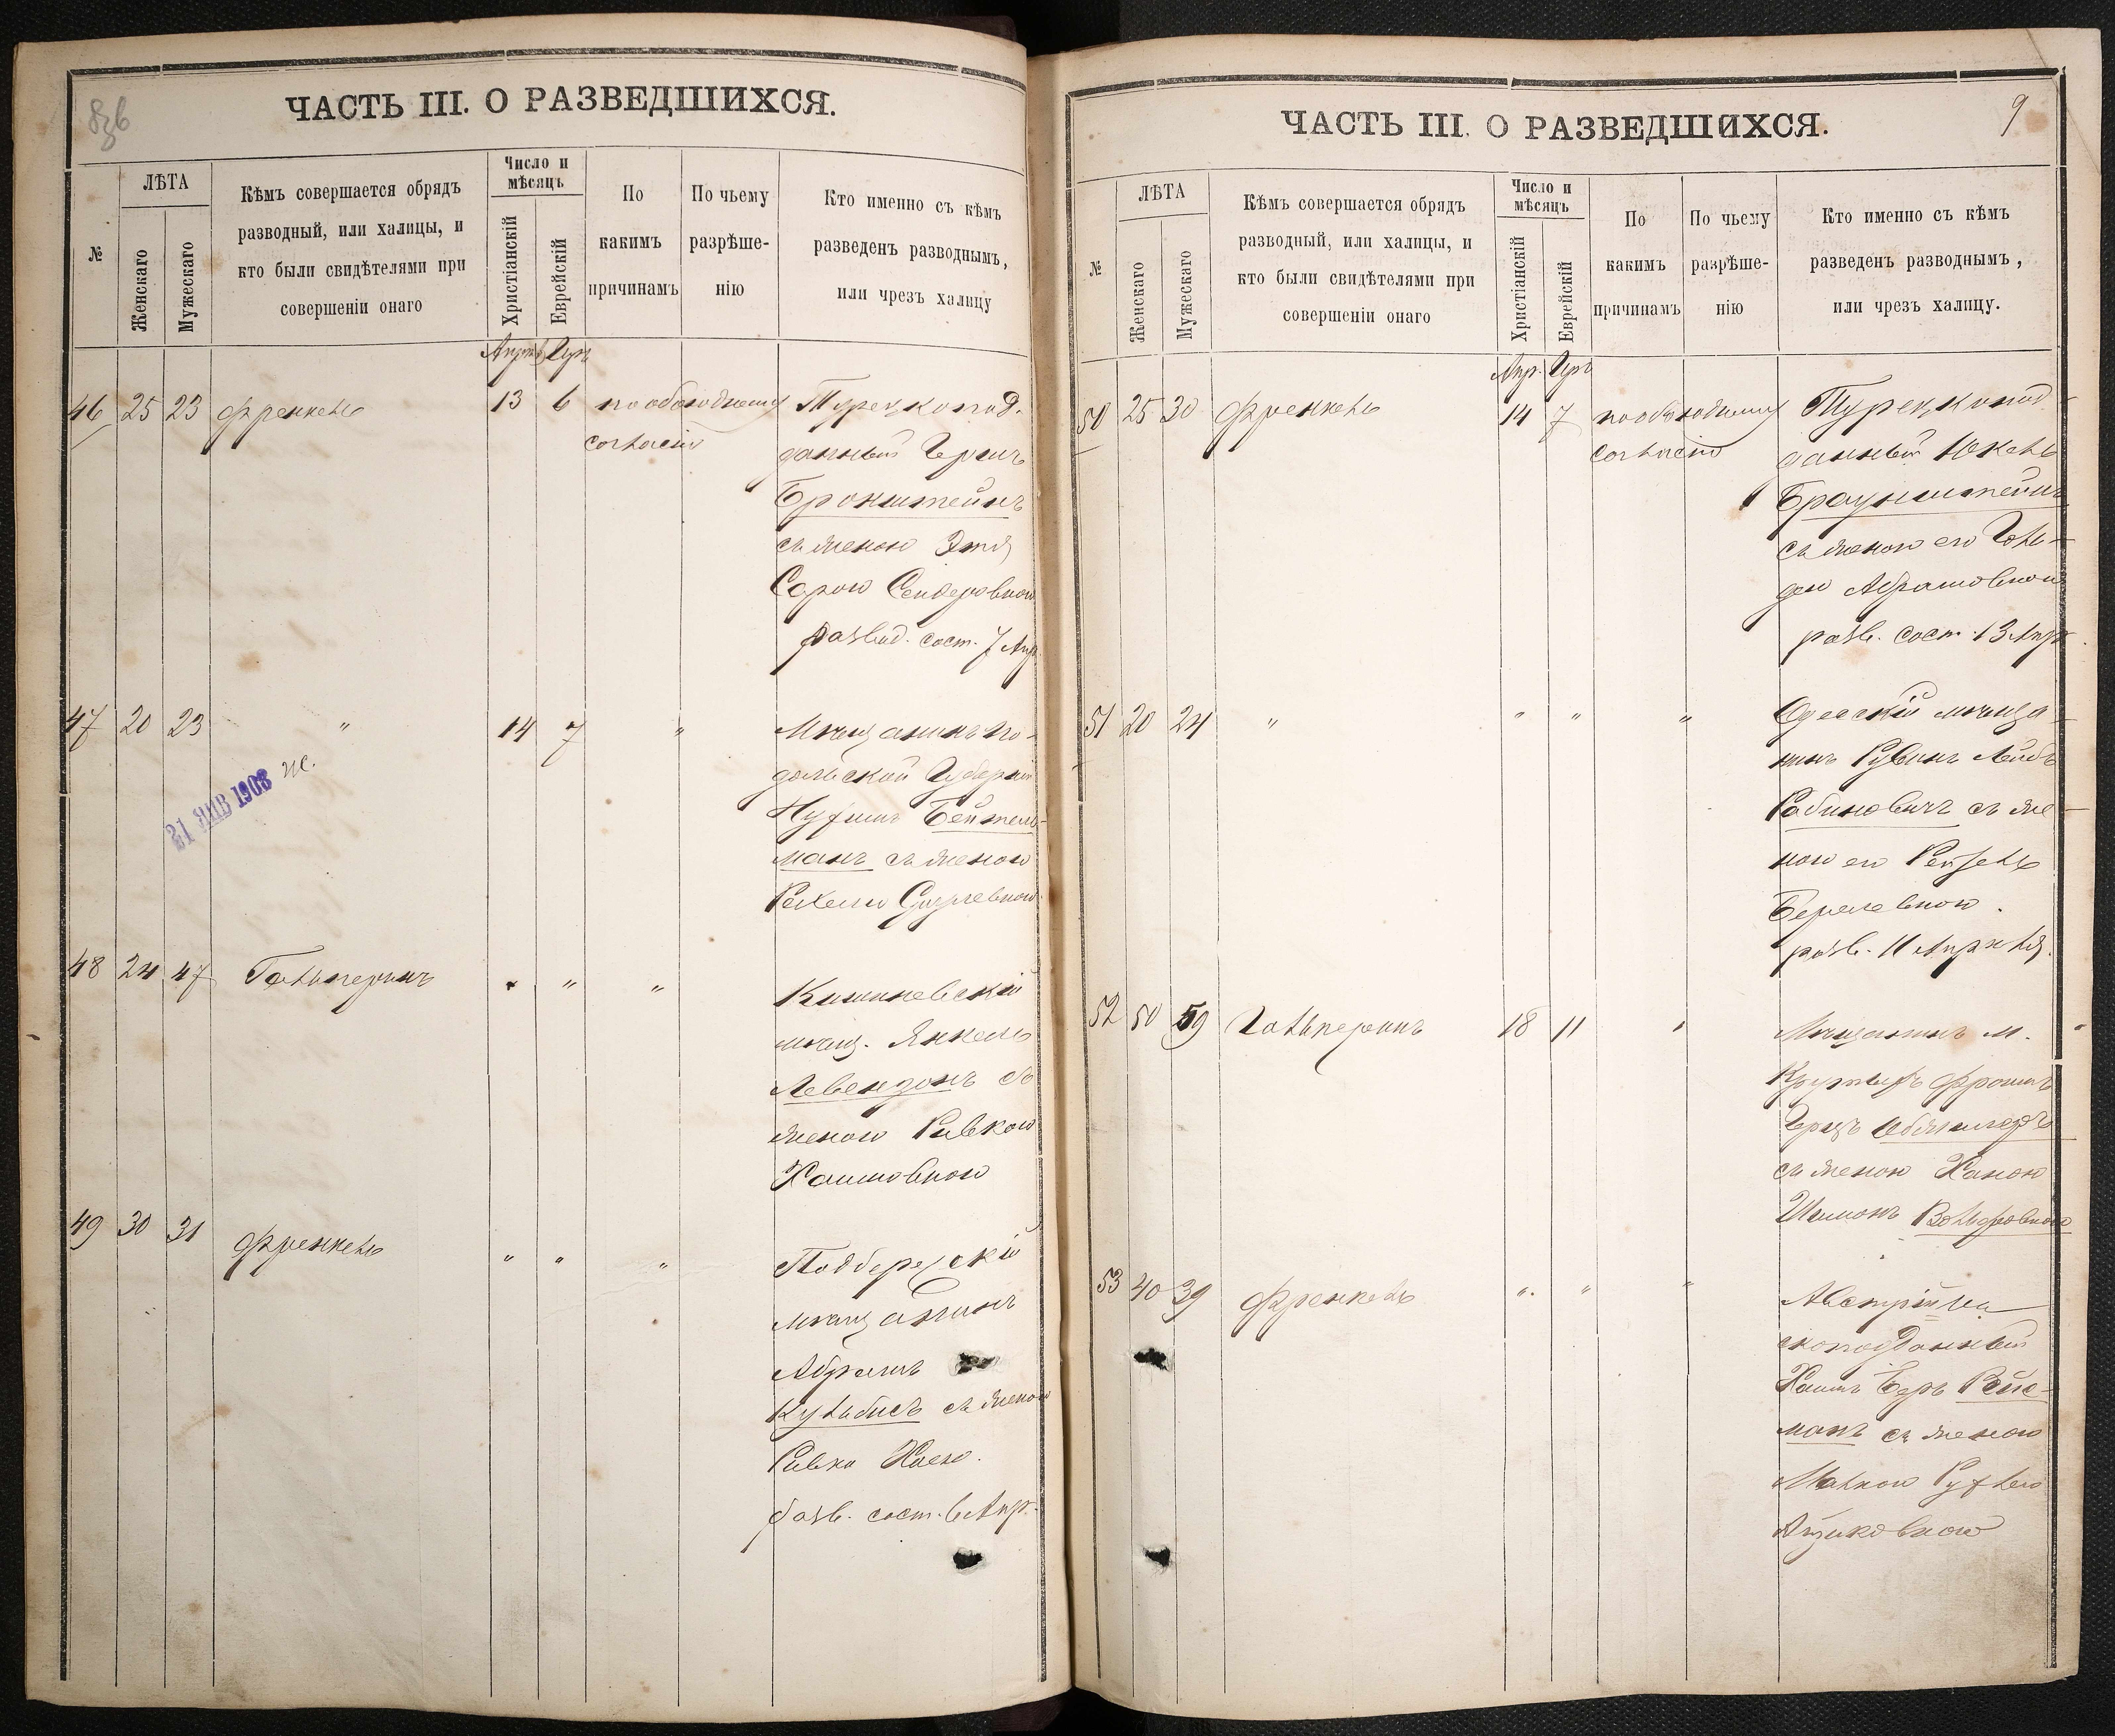 ЧАСТЬ III. О РАЗВЕДШИХСЯ.
№
ЛѢТА
Женскаго
Мужескаго
Кѣмъ совершается обрядъ
разводный, или халицы, и
кто были свидѣтелями при
совершеніи онаго
Число и
мѣсяцъ
Христіанскій
Еврейскій
По
какимъ
причинамъ
По чьему
разрѣше-
нію
Кто именно съ кѣмъ
разведенъ разводнымъ,
или чрезъ халицу
46 25 23 Френкель 13 6 по обоюдному
согласію
Турецкопод-
данный Герш
Бронштейнъ
съ женою Этя
Сарою Сендеровною
развод. сост. 7 Апр.
47 20 23 " 14 7 "
Мѣщанинъ По-
дольской Губерніи
Бейтель-
манъ съ женою
21 ЯНВ 1903
48 24 47 Гальперинъ " " "
Кишиневскій
мѣщ. Янкель
Левензонъ съ
женою Ривкою
Хаимовною
49 30 31 Френкель " " "
Подберезскій
мѣщанинъ
Абрамъ
Кульбисъ съ женою
Ривка Хаею.
разв. сост. 6 Апр.
ЧАСТЬ III. О РАЗВЕДШИХСЯ.
9
№
ЛѢТА
Женскаго
Мужескаго
Кѣмъ совершается обрядъ
разводный, или халицы, и
кто были свидѣтелями при
совершеніи онаго
Число и
мѣсяцъ
Христіанскій
Еврейскій
По
какимъ
причинамъ
По чьему
разрѣше-
нію
Кто именно съ кѣмъ
разведенъ разводнымъ,
или чрезъ халицу.
Апр. Iръ
50 25 30 Френкель 14 7 по обоюдному
согласію
Турецкопод-
данный Юкель
Браунштейнъ
съ женою его Голь-
дою Абрамовною
разв. сост. 13 Апр.
51 20 24 " " " "
Одесскій мѣща-
нинъ Рувинъ Лейбъ
Рабиновичъ съ же-
ною его Рейзель
Берелевною.
разв. 11 Апрѣля.
52 50 59 Гальперинъ 18 11 "
Мѣщанинъ м.
съ женою Ханою
53 40 39 Френкель " " "
Австрійско-
скоподданный
Хаимъ Беръ Рейс-
манъ съ женою
Малкою
Ициковною